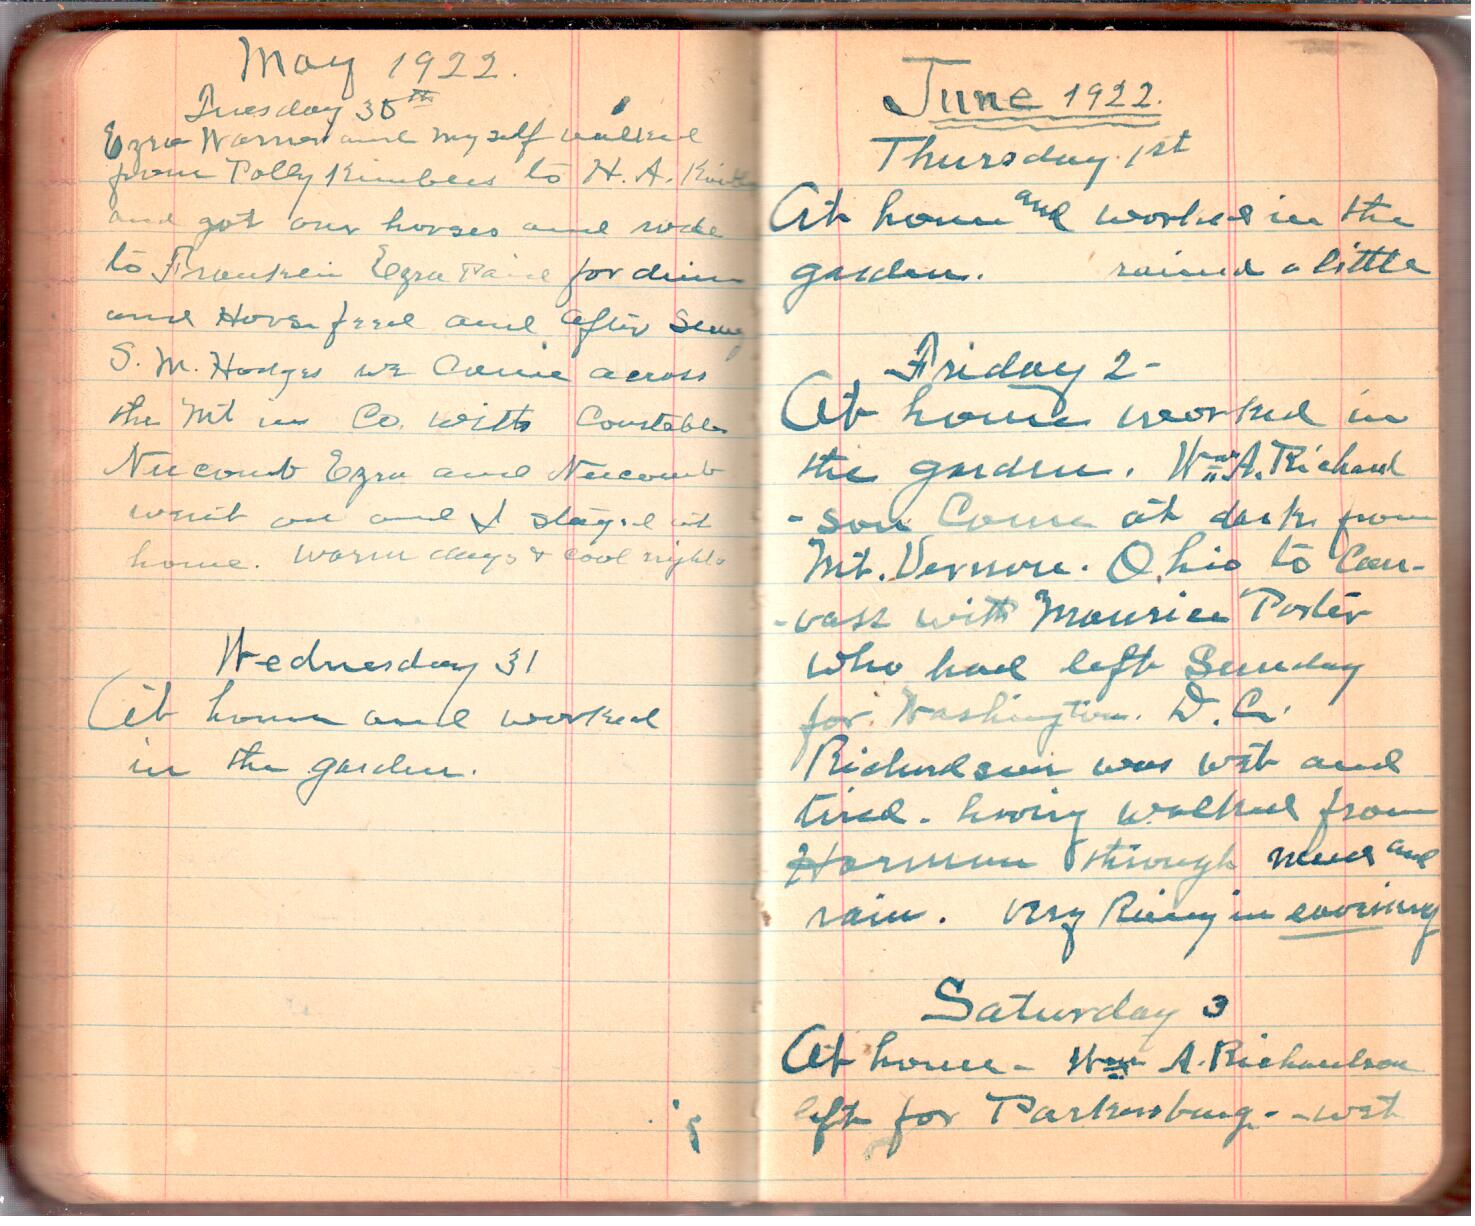 May 1922.
Tuesday 30th
Ezra Warner and myself walked
from Polly Kimbles to H. A.
and got our horses and rode
to Franklin Ezra Paid for dinner
and Horse feed and after Seeing
S. M. Hodges we Come across
the Mt in Co. with Constable
Nucomb Ezra and Nucomb
went on and I stayed at
home. warm days & cool nights
Wednesday 31
At home and worked
in the garden.
June 1922.
Thursday 1st
At home and worked in the
garden. rained a little
Friday 2-
At home worked in
the garden. Wm A. Richard
-son Come at dark from
Mt. Vernon. Ohio to Can-
-vass with Maurice Porter
who had left Sunday
for Washington. D.C.
Richardson was wet and
tired. having walked from
Harman through mud and
rain. very Rainy in evening
Saturday 3
At home - Wm A. Richardson
left for Parkersburg - - wet